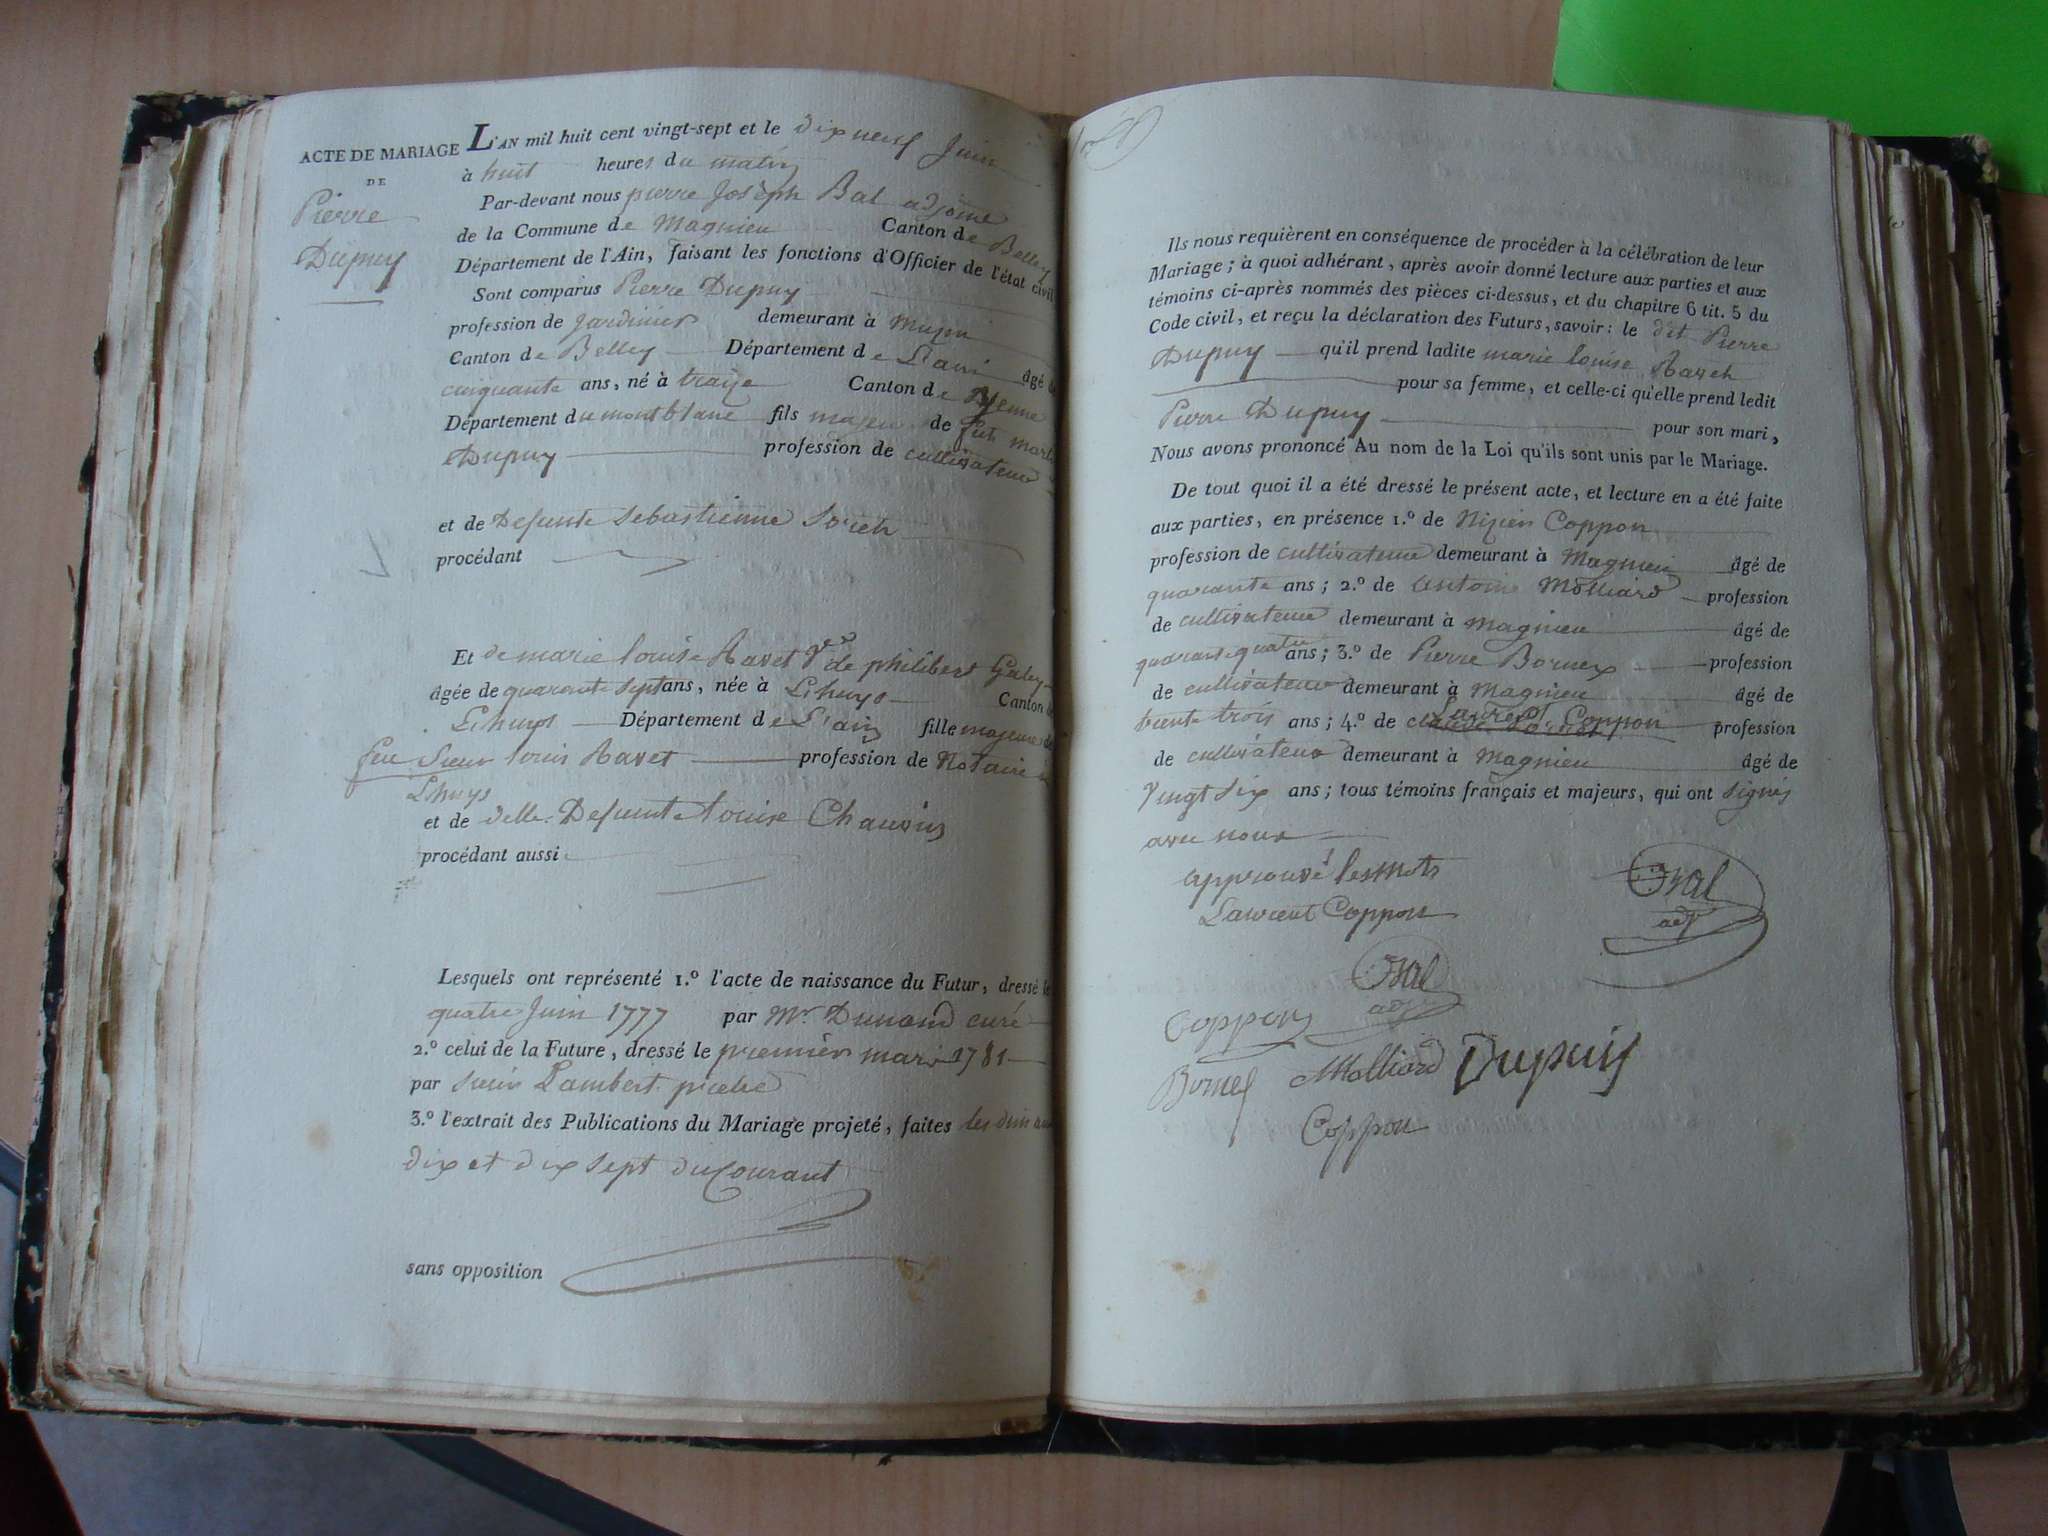 ACTE DE MARIAGE
DE
Pierre
Dupuy
L'AN mil huit cent vingt-sept et le dix neuf Juin
à huit heures du matin
Par-devant nous pierre Joseph Bal adjoint
de la Commune de Magnieu Canton de Belley
Département de l'Ain, faisant les fonctions d'Officier de l'état civil
Sont comparus Pierre Dupuy
profession de Jardinier demeurant à
Canton de Belley Département de L'ain âgé de
cinquante ans, né à traize Canton de Yenne
Département du montblanc fils majeur de feu
Dupuy profession de cultivateur
et de Defunte Sebastienne
procédant
Et de marie louise Ravet Ve de philibert Galey
âgée de quarante sept ans, née à Lhuys Canton de
Lhuys Département de L'ain fille majeure de
feu Sieur louis Ravet profession de Notaire à
Lhuys
et de delle Defunte louise Chauvin
procédant aussi
Lesquels ont représenté 1.º l'acte de naissance du Futur, dressé le
quatre Juin 1777 par Mr Dunand curé
2.º celui de la Future, dressé le premier mars 1781
par Sieur Lambert
3.º l'extrait des Publications du Mariage projeté, faites les
dix et dix sept du Courant
sans opposition
Ils nous requièrent en conséquence de procéder à la célébration de leur
Mariage; à quoi adhérant, après avoir donné lecture aux parties et aux
témoins ci-après nommés des pièces ci-dessus, et du chapitre 6 tit. 5 du
Code civil, et reçu la déclaration des Futurs, savoir: le dit Pierre
Dupuy qu'il prend ladite marie louise Ravet
pour sa femme, et celle-ci qu'elle prend ledit
Pierre Dupuy pour son mari,
Nous avons prononcé Au nom de la Loi qu'ils sont unis par le Mariage.
De tout quoi il a été dressé le présent acte, et lecture en a été faite
aux parties, en présence 1.º de Nizier Coppon
profession de cultivateur demeurant à Magnieu âgé de
quarante ans; 2.º de antoine Molliard profession
de cultivateur demeurant à magnieu âgé de
quarante quatre ans; 3.º de Pierre Bornex profession
de cultivateur demeurant à Magnieu âgé de
trente trois ans; 4.º de Laurent Coppon profession
de cultivateur demeurant à Magnieu âgé de
Vingt six ans; tous témoins français et majeurs, qui ont signés
avec nous
approuvé les mots
Laurent Coppon
Bal
adj
Bal
adj
Coppon
Molliard Dupuis
Coppon